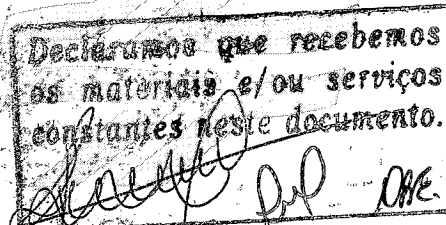 Declaramos que recebemos
os materiais e/ou serviços
constantes neste documento.